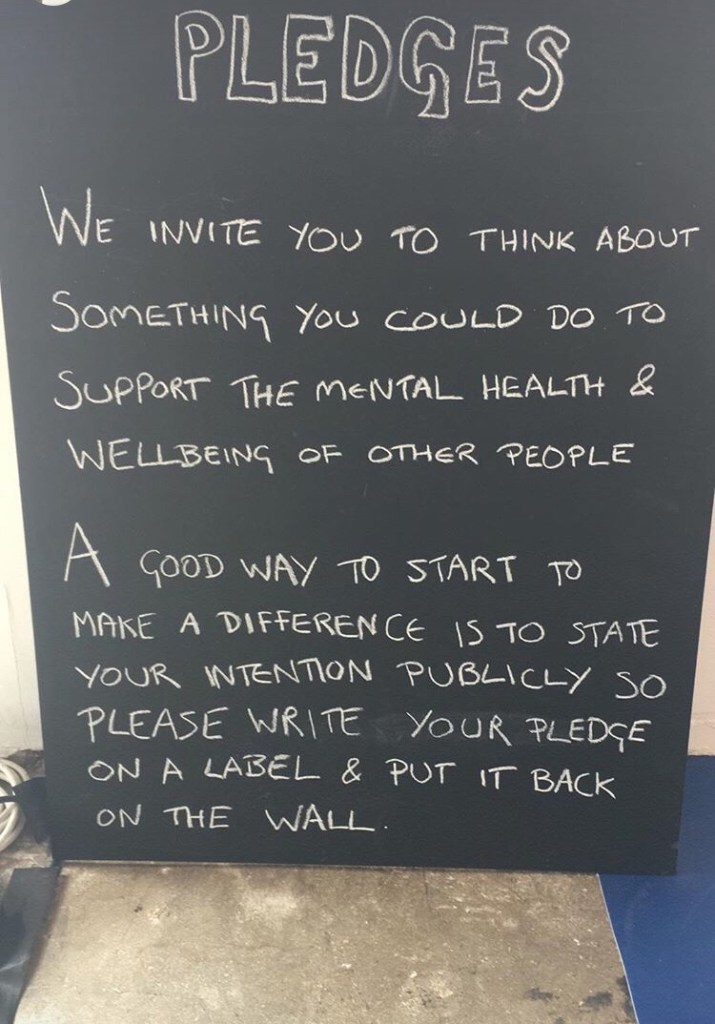 PLEDGES
WE INVITE YOU TO THINK ABOUT
SOMETHING YOU COULD DO TO
SUPPORT THE MENTAL HEALTH &
WELLBEING OF OTHER PEOPLE
A GOOD WAY TO START TO
MAKE A DIFFERENCE IS TO STATE
YOUR INTENTION PUBLICLY SO
PLEASE WRITE YOUR PLEDGE
ON A LABEL & PUT IT BACK
ON THE WALL.